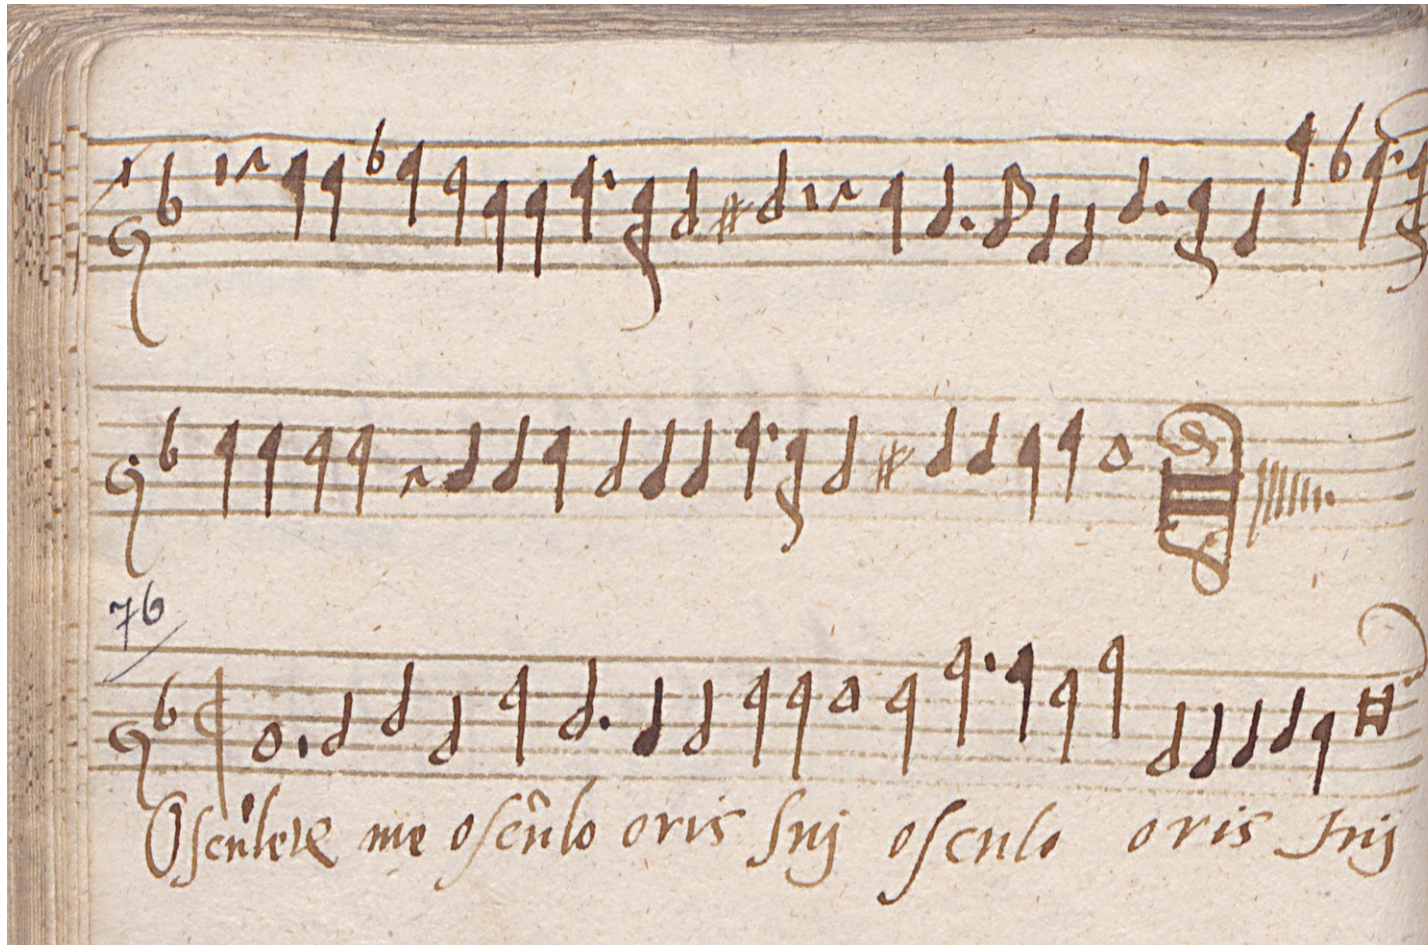 76
Osculere me osculo oris suij osculo oris suij